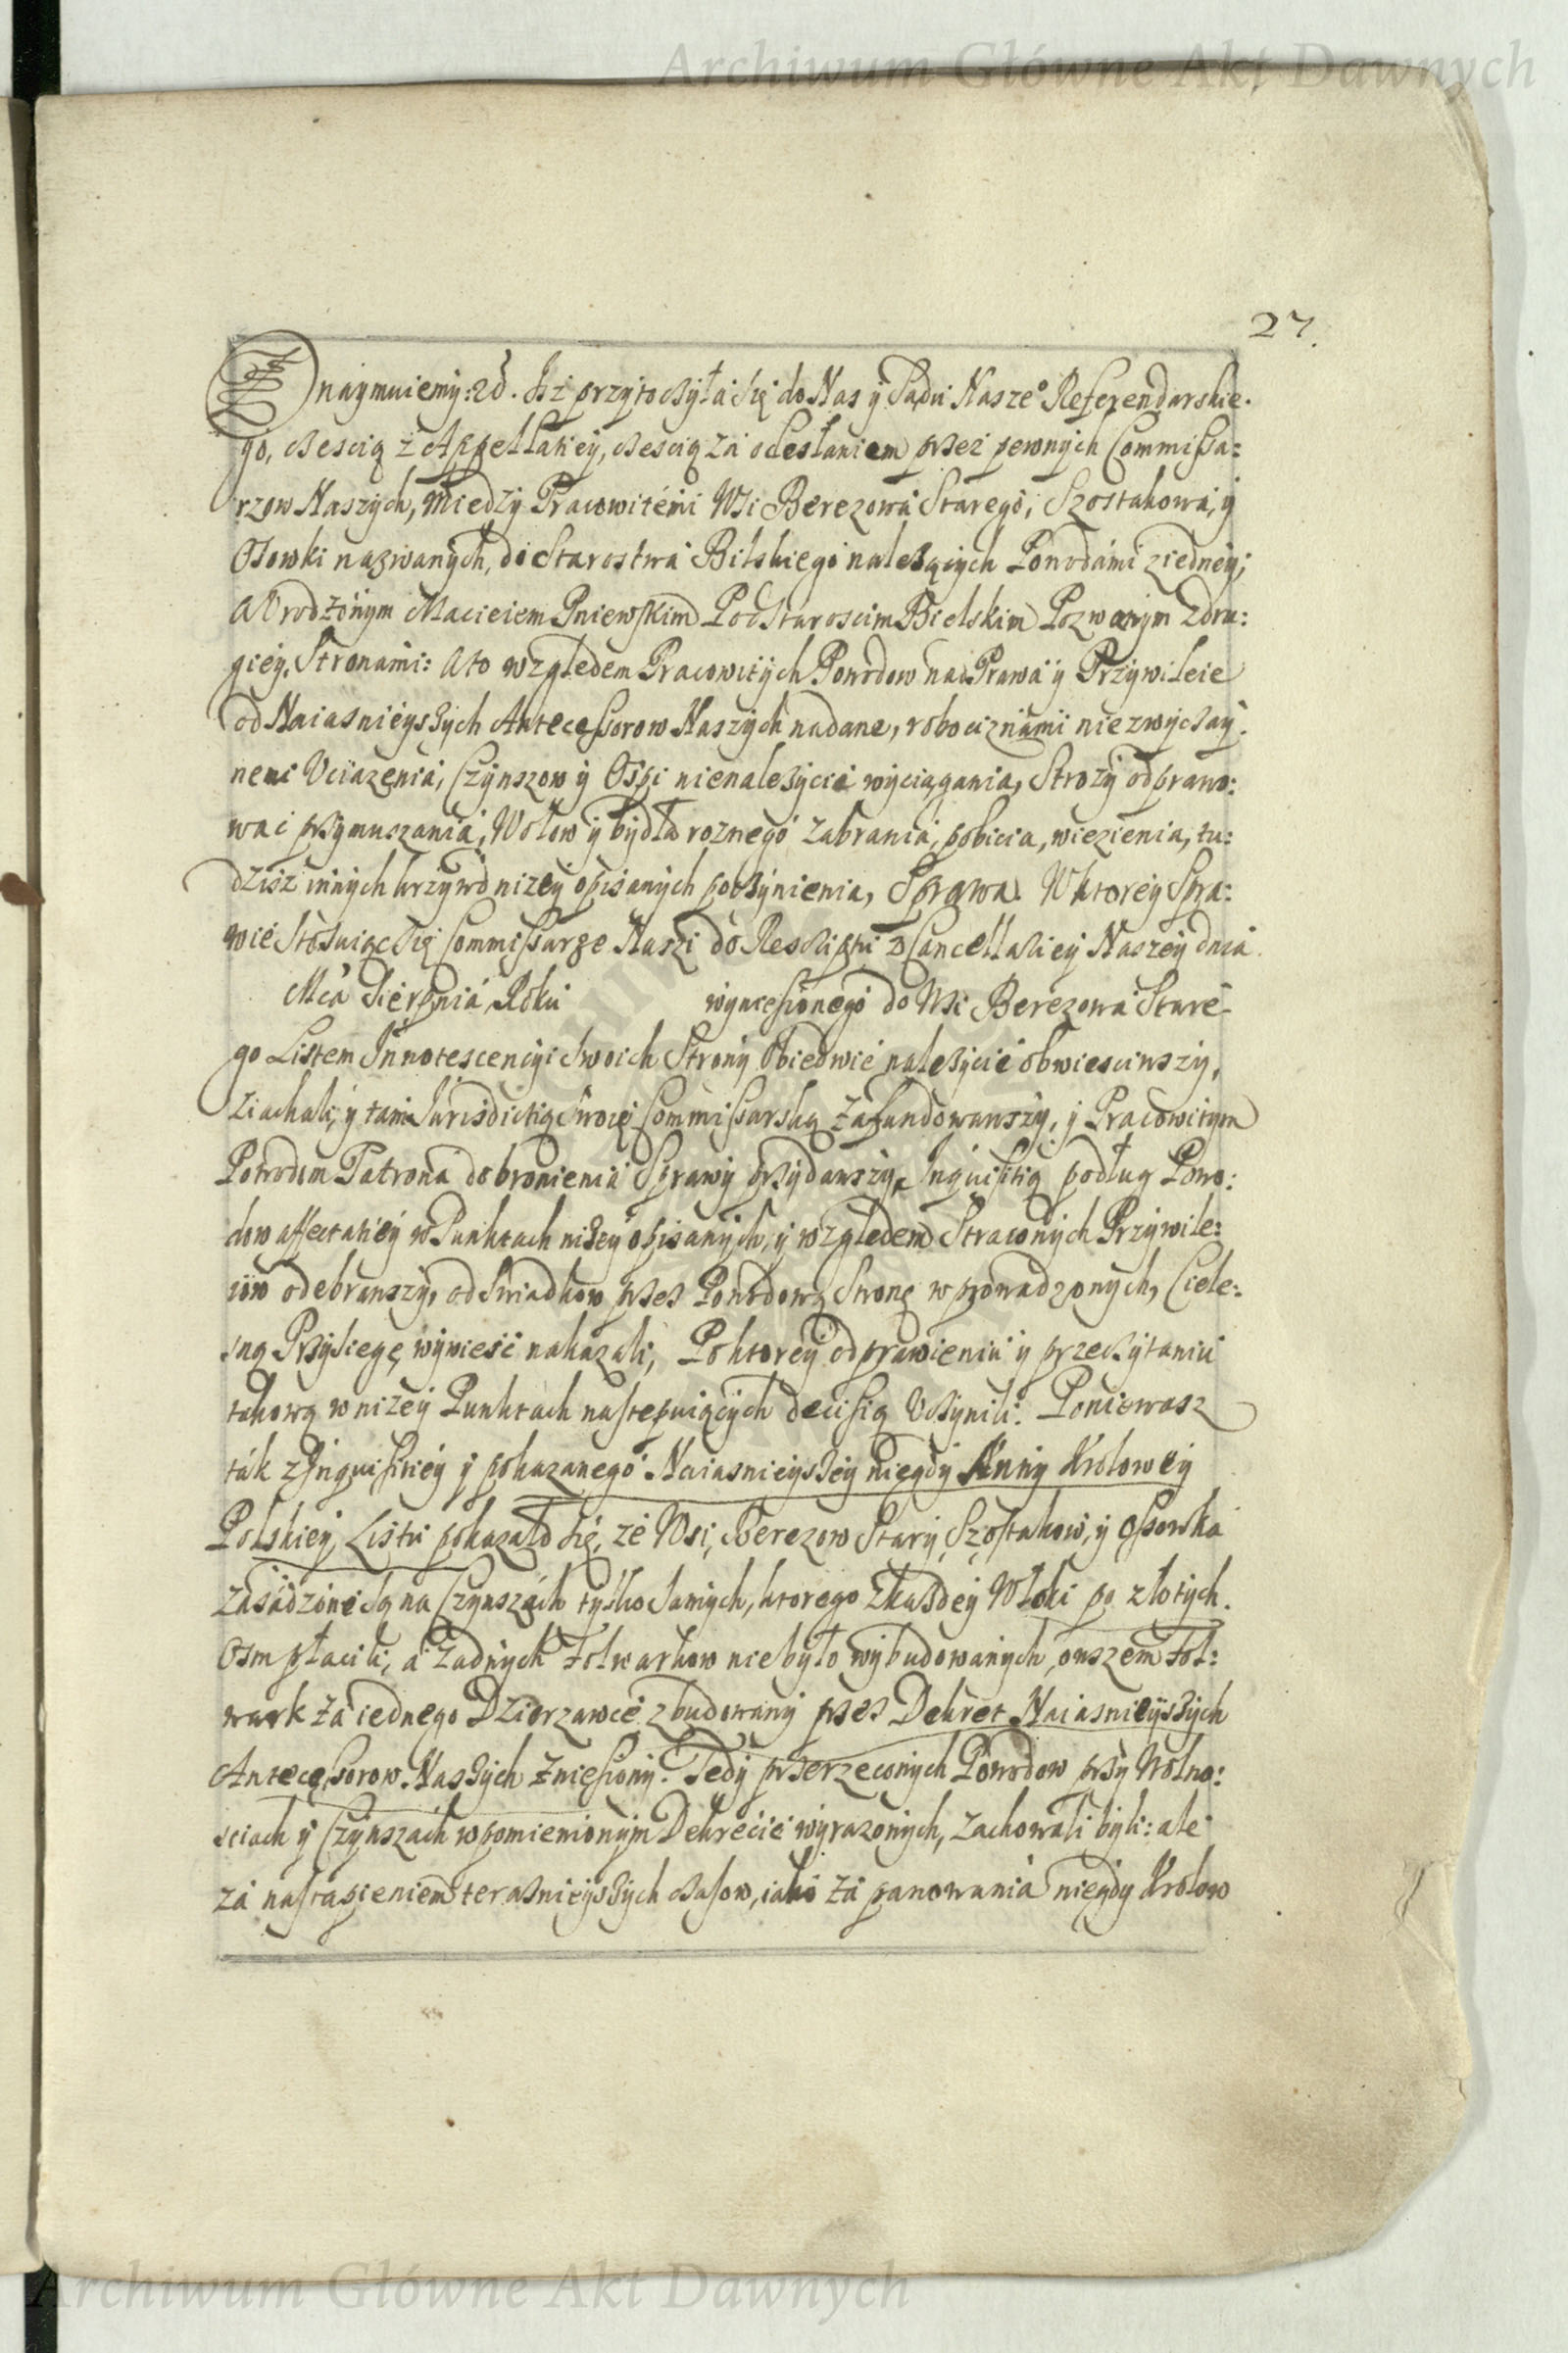 Archiwum Główne Akt Dawnych
27.
Oznaymuiemy: 2d. Jsz przytoczyła się do Nas y Sądu Nasze° Referendarskie.
go, czescią z Appellatiey, czescią za odesłaniem przez pewnych Commissa:
rzow Naszych, między Pracowitemi Wsi Berezowa Starego, Szostakowa, y
Osowki nazwanych, do Starostwa Bilskiego należących Powodami z iedney;
A Urodzonym Macieiem Pniewskim Podstaroscim Bielskim Pozwanym z dru:
giey, Stronami: A to względem Pracowitych Powodow nad Prawa y Przywileie
od Naiasnieyszych Antecessorow Naszych nadane, robociznami niezwyczay:
nemi Uciązenia, Czynszow y Ospi nienależycie wyciągania, Stroży odprawo:
wac przymuszania, Wołow y bydła roznego zabrania, pobicia, więzienia, tu:
dzisz innych krzywd nizey opisanych poczynienia, Sprawa. W ktorey Spra:
wie Stosuiąc się Commissarze Naszi do Reskriptu z Cancellariey Naszey dnia
Mca Sierpnia Roku wyniesionego do Wsi Berezowa Stare-
go Listem Innotescencyi swoich Strony Obiedwie należycie obwiesciwszy,
ziachali, y tam Jurisdictią swoię Commissarską zafundowawszy, y Pracowitym
Powodom Patrona do bronienia Sprawy przydawszy, Inquisitią podług Powo:
dow affectatiey w Punktach niżey opisanych, y względem Straconych Przywile:
iow odebrawszy, od Swiadkow przez Powodową Stronę wprowadzonych, Ciele:
sną Przysięgę wyniesć nakazali, Po ktorey odprawieniu y przeczytaniu
takową w niżey Punktach następuiących decisią Uczynili. Poniewasz
ták z Jnquisitiey y pokazanego Naiasnieyszey niegdy Anny Krolowey
Polskiey Listu pokazało się, że Wsi, Berezow Stary, Szostakow, y Ossowka
zasádzone są na Czynszách tylko samych, ktorego z każdey Włoki po złotych.
Osm płacili, a żadnych Folwarkow niebyło wybudowanych, owszem Fol:
wark za iednego Dzierzawce zbudowany przez Dekret Naiasnieyszych
Antecessorow Naszych zniesiony. Tedy przerzeczonych Powodow przy Wolno:
sciach y Czynszach w pomienionym Dekrecie wyrazonych, zachowali byli: ale
za nastąpieniem teraznieyszych czasow, iako za panowania niegdy Krolow
Archiwum Główne Akt Dawnych